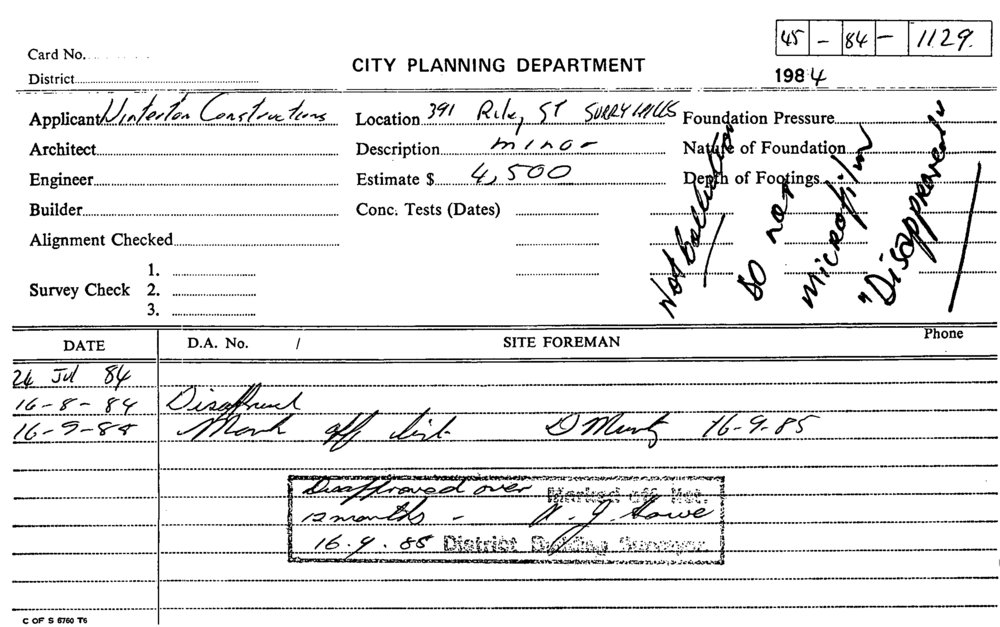 45 - 84 - 1129.
Card No.
CITY PLANNING DEPARTMENT
1984
District
Applicant Winterton Constructions
Location 391 Riley ST SURRY HILLS
Foundation Pressure
Architect
Description minor
Nature of Foundation
Engineer
Estimate $ 4,500
Depth of Footings
Builder
Conc. Tests (Dates)
Alignment Checked
1.
Survey Check 2.
3.
Not
DO not
Microfilm
"Disapproved"
DATE D.A. No. / SITE FOREMAN Phone
24 Jul 84
16-8-84 Disapproved
16-9-85 Mark off list. D 16-9-85
Disapproved over Marked off
12 months -
16.9.85 District Building Surveyor.
C OF S 6760 T6